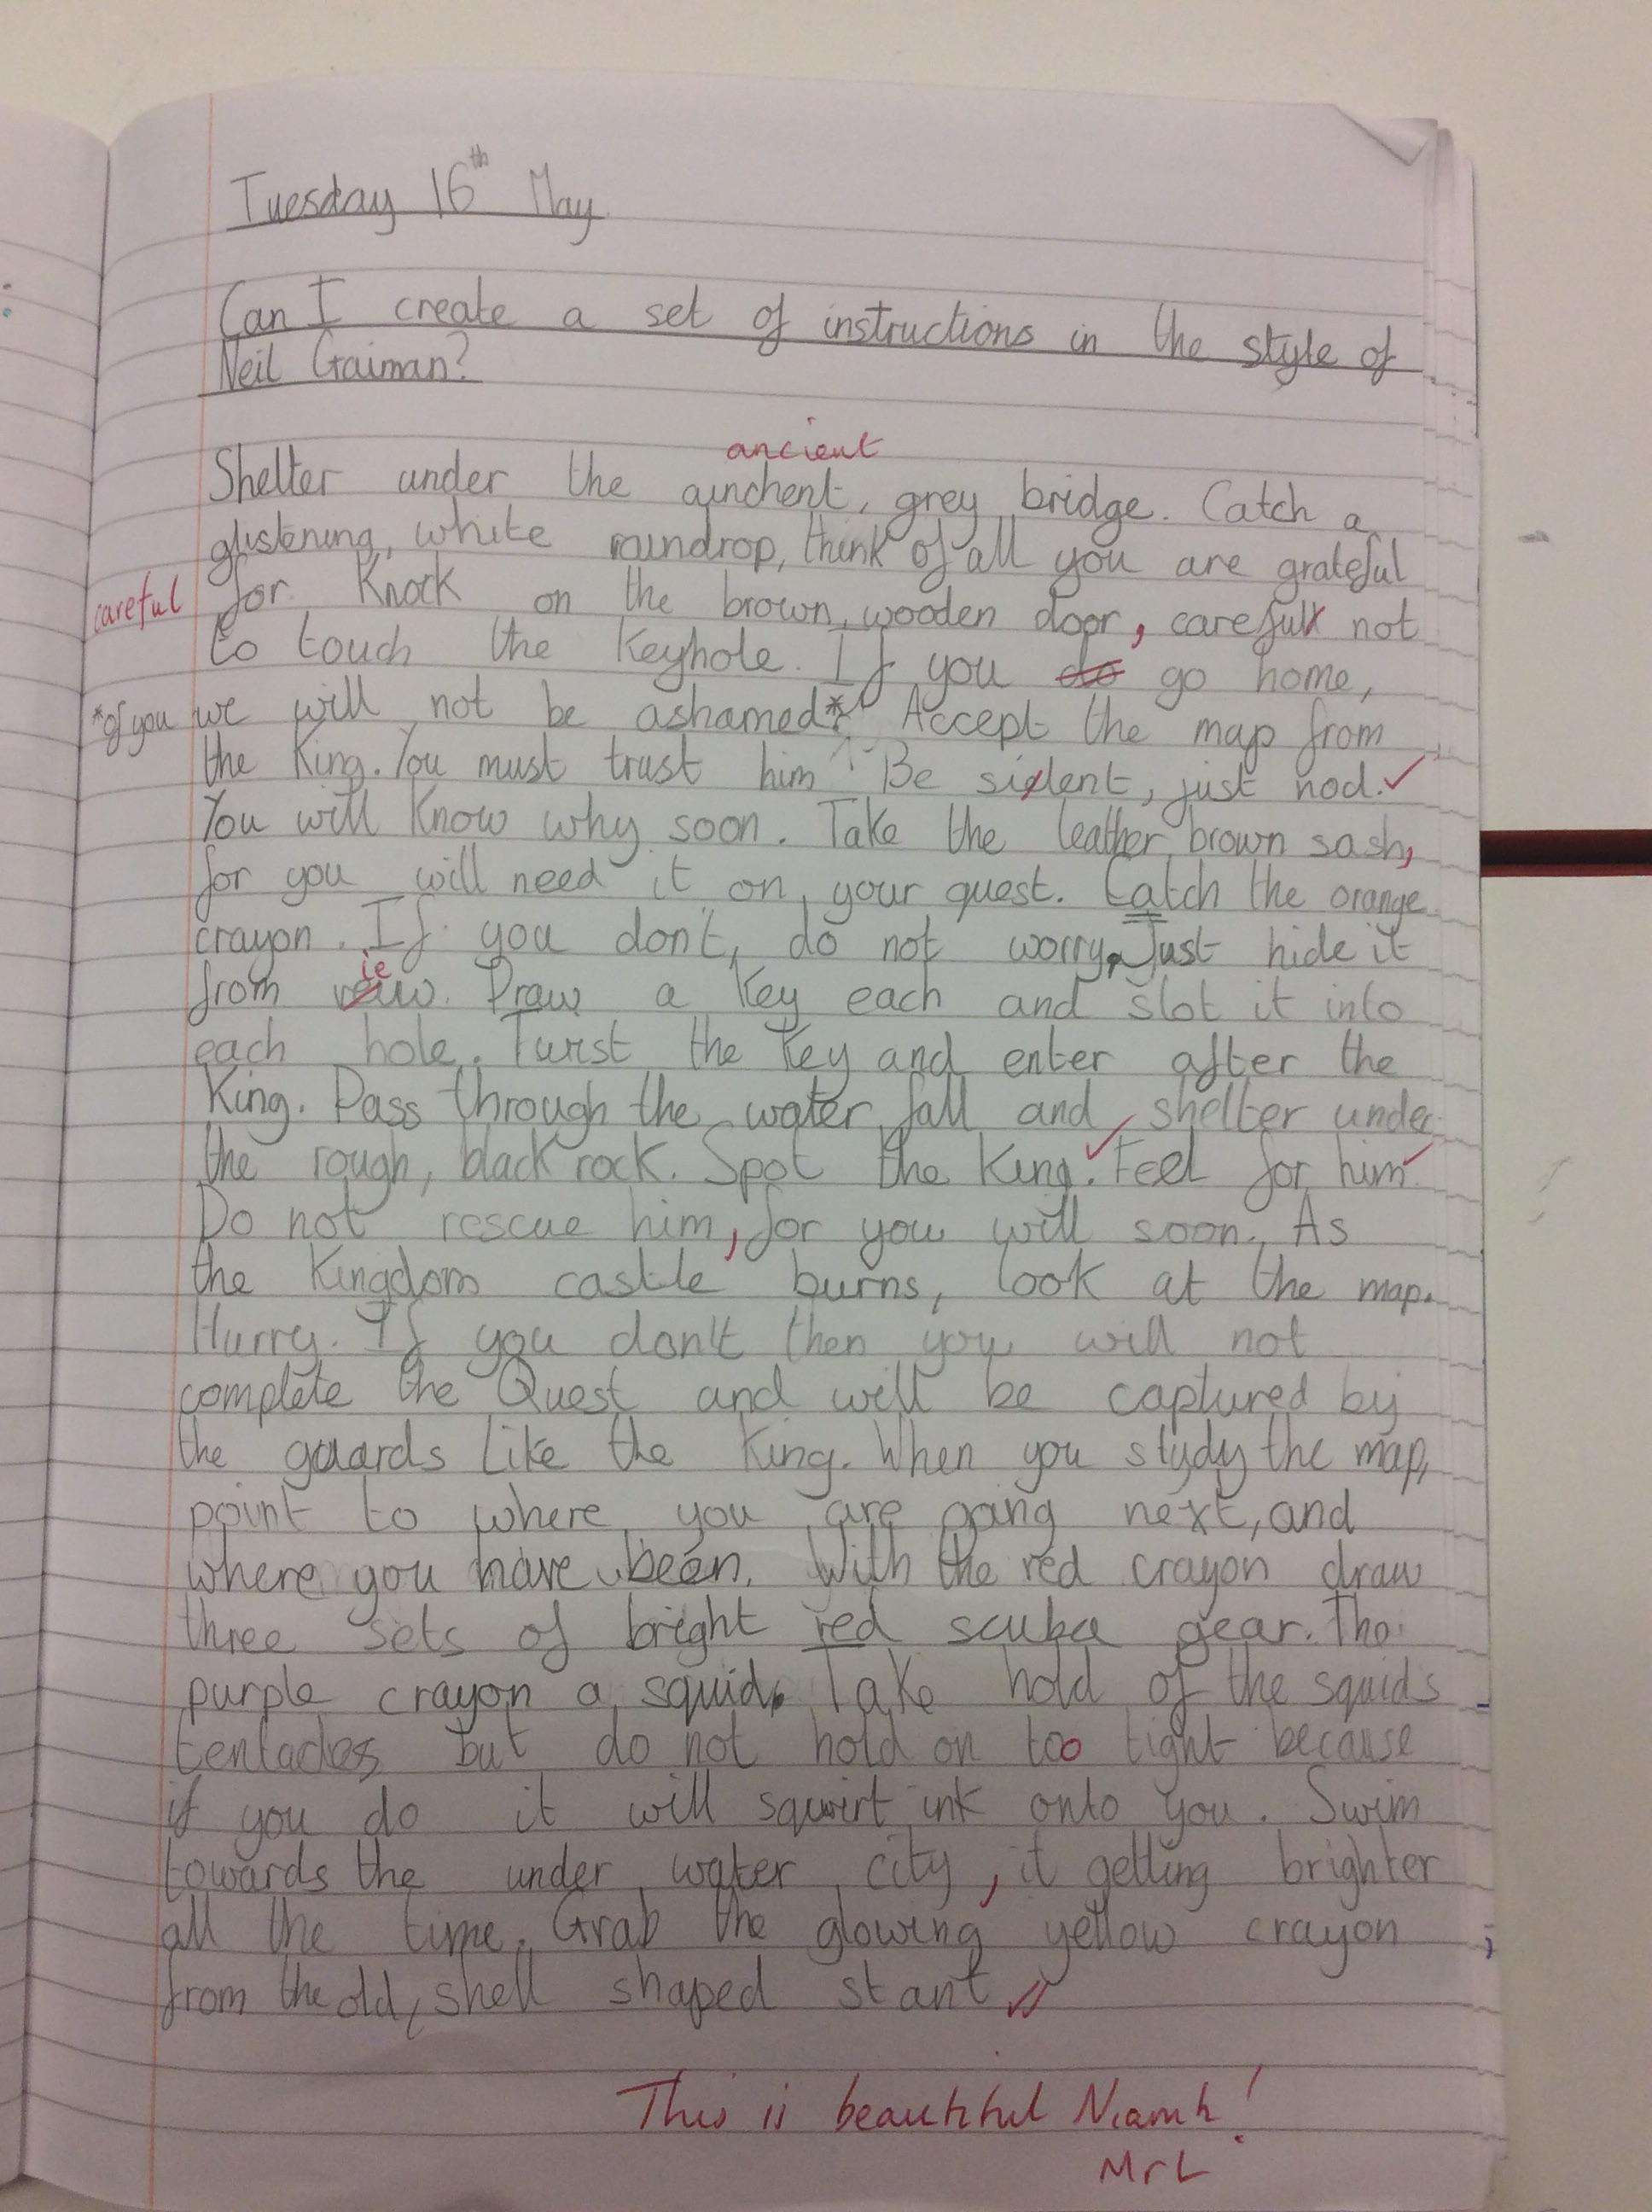 Tuesday 16th May
Can I create a set of instructions in the style of
Neil Gaiman?
ancient
Shelter under the ainchent, grey bridge. Catch a
glistening, white raindrop, think of all you are grateful
careful for. Knock on the brown, wooden door, carefull not
to touch the keyhole. If you do go home,
*of you we will not be ashamed*. Accept the map from
the King. You must trust him. Be silent, just nod.
You will know why soon. Take the leather, brown sash,
for you will need it on your quest. Catch the orange
crayon. If you don't, do not worry. Just hide it
ie
from veiw. Draw a key each and slot it into
each hole. Twist the key and enter after the
King. Pass through the water fall and shelter under
the rough, black rock. Spot the King. Feel for him.
Do not rescue him, for you will soon. As
the Kingdom castle burns, look at the map.
Hurry. If you don't then you will not
complete the Quest and will be captured by
the gaurds like the King. When you study the map,
point to where you are going next, and
where you have been. With the red crayon draw
three sets of bright red scuba gear. The
purple crayon a squid. Take hold of the squids
tentacles but do not hold on too tight because
if you do it will squirt ink onto you. Swim
towards the under water city, it getting brighter
all the time. Grab the glowing yellow crayon
from the old, shell shaped stant
This is beautiful Niamh!
Mr L